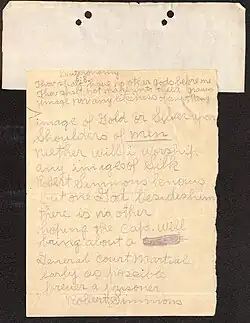 Deuteronomy
Thou shalt have no other gods before me
Thou shalt not make unto thee a graven
image nor any likeness of anything
image of Gold or Silver upon
Shoulders of men
neither will i worship
any images of Silk
Robert Simmons knows
but one God besides him
there is no other
hoping the Capt. will
bring about a
General Court Martial
early as possible
a prisoner
Robert Simmons